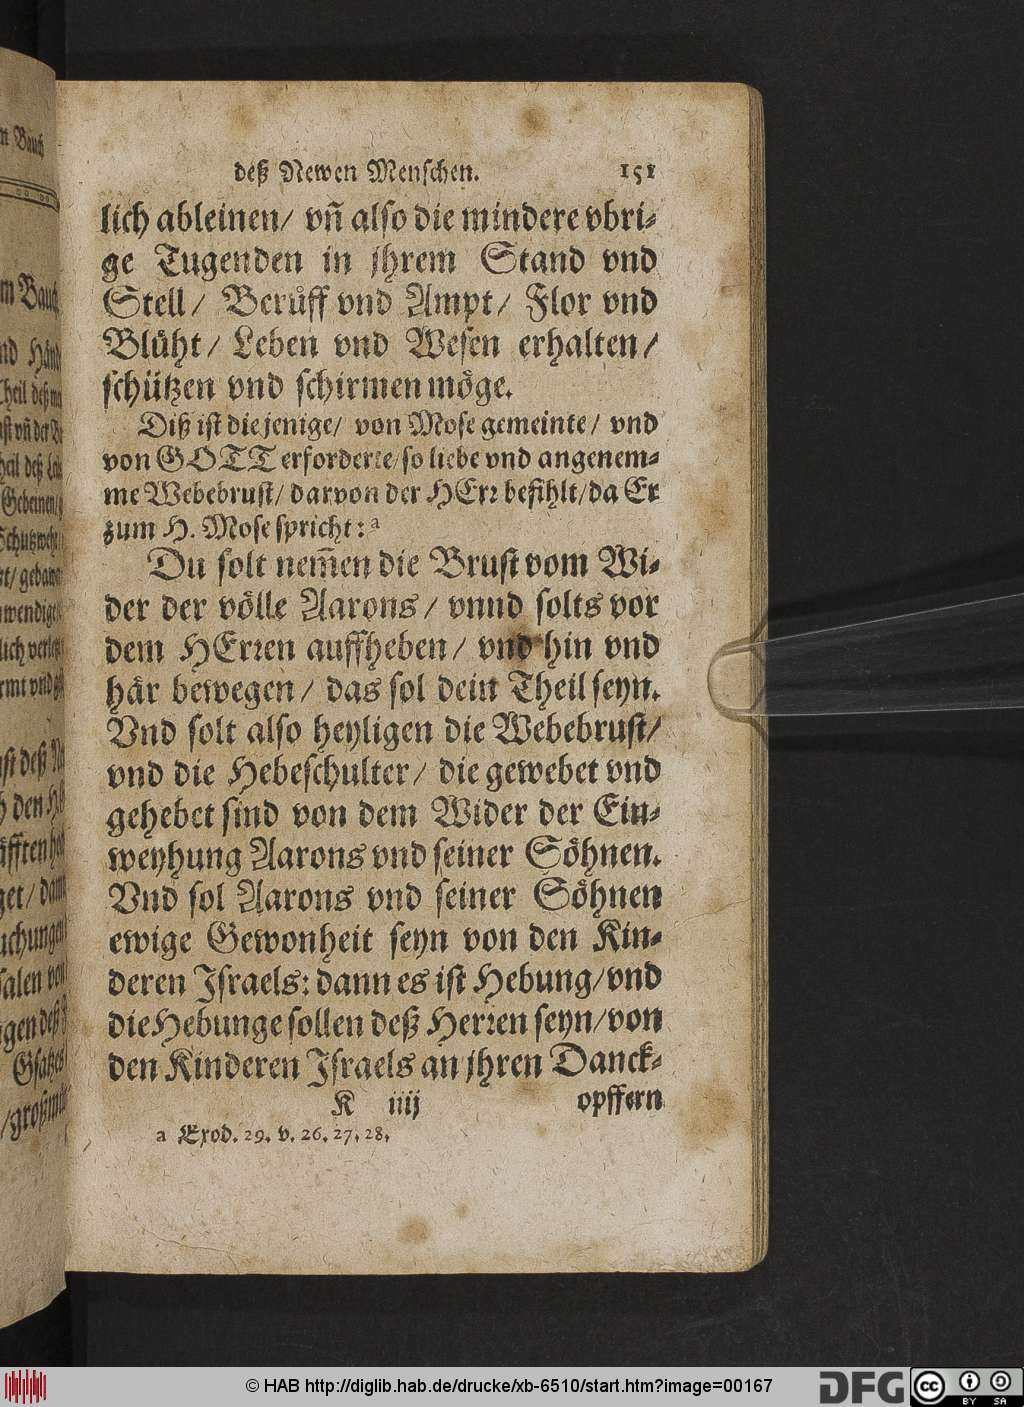 deß Newen Menschen. 151
lich ableinen/ vñ also die mindere vbri-
ge Tugenden in jhrem Stand vnd
Stell/ Berůff vnd Ampt/ Flor vnd
Blüht/ Leben vnd Wesen erhalten/
schützen vnd schirmen möge.
Diß ist die jenige/ von Mose gemeinte/ vnd
von GOTT erforderte/ so liebe vnd angenem-
me Webebrust/ darvon der HErr befihlt/ da Er
zum H. Mose spricht: a
Du solt nem̃en die Brust vom Wi-
der der völle Aarons/ vnnd solts vor
dem HErren auffheben/ vnd hin vnd
här bewegen/ das sol dein Theil seyn.
Vnd solt also heyligen die Webebrust/
vnd die Hebeschulter/ die gewebet vnd
gehebet sind von dem Wider der Ein-
weyhung Aarons vnd seiner Söhnen.
Vnd sol Aarons vnd seiner Söhnen
ewige Gewonheit seyn von den Kin-
deren Israels: dann es ist Hebung/ vnd
die Hebunge sollen deß Herren seyn/ von
den Kinderen Israels an jhren Danck-
K iiij opffern
a Exod. 29. v. 26. 27. 28.
© HAB http://diglib.hab.de/drucke/xb-6510/start.htm?image=00167
DFG
cc BY SA